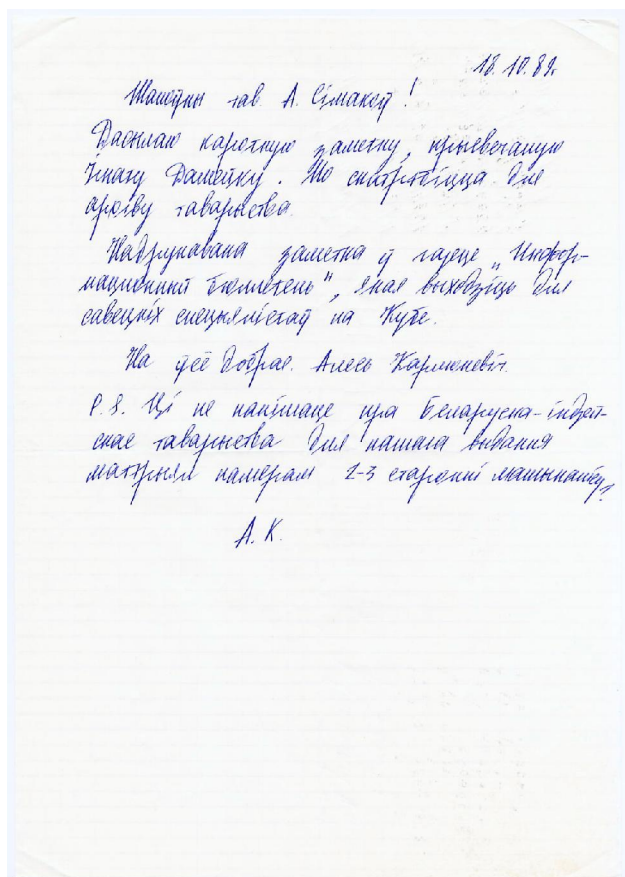 18.10.89г
Шаноўны тав. А. Сімакоў!
Дасылаю кароткую заметку, прысвечаную
Ігнату Дамейку. Мо скарыстаецца для
архіву таварыства.
Надрукавана заметка ў газеце „Инфор-
мационный бюллетень", якая выходзіць для
савецкіх спецыялістаў на Кубе.
На ўсё добрае. Алесь Карлюкевіч.
P.S. Ці не напішаце пра Беларуска-індзей-
скае таварыства для нашага выдання
матэрыял памерам 2-3 старонкі машынапісу?
А.К.